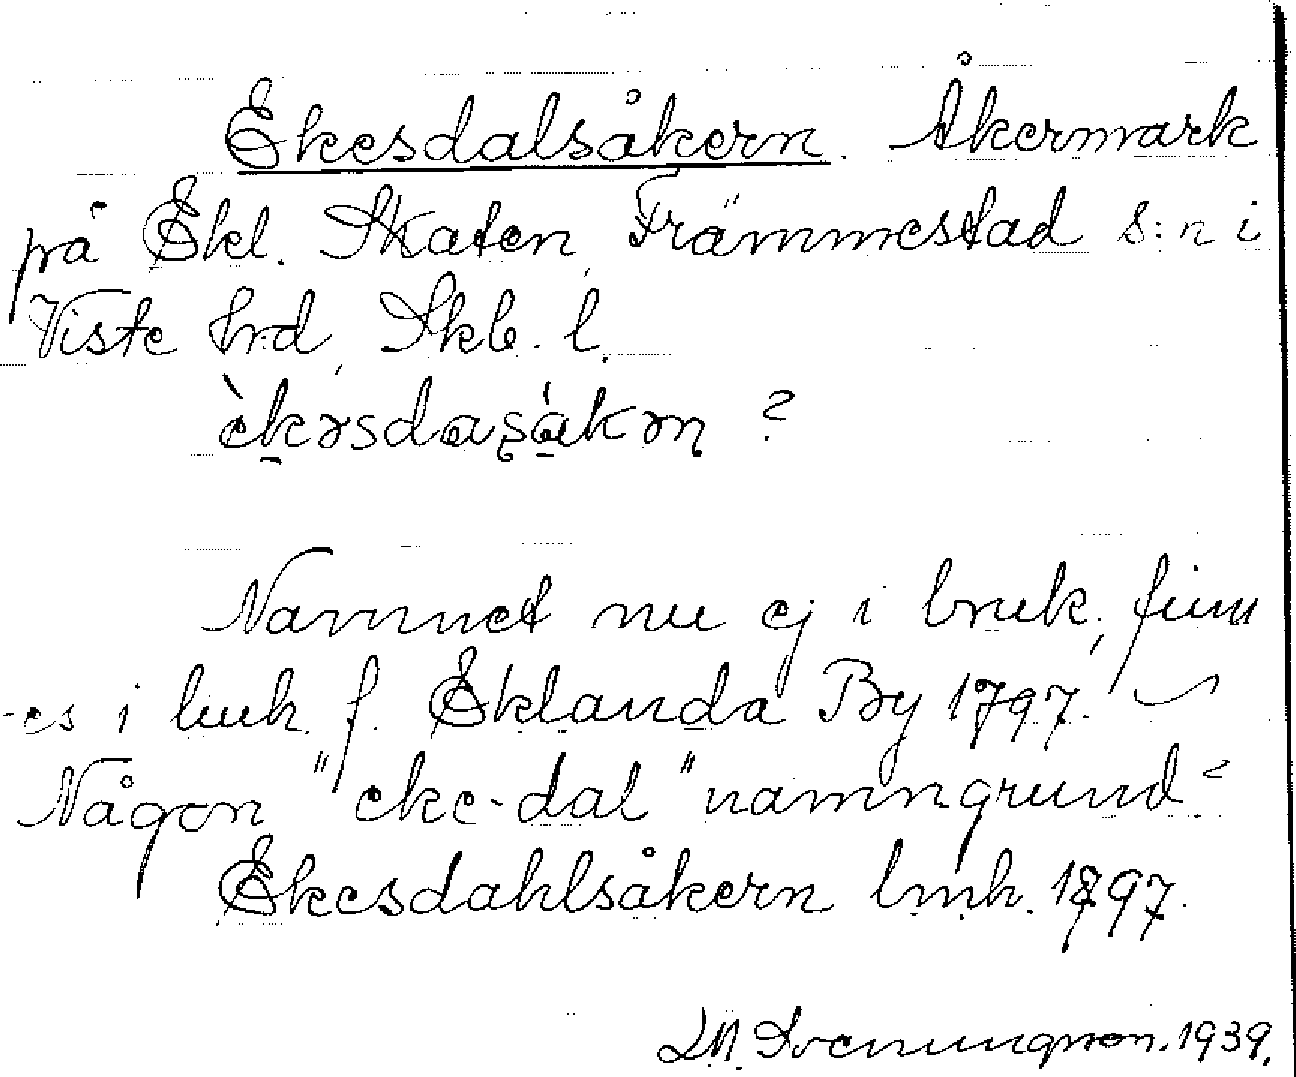 Ekesdalsåkern. Åkermark
på Ekl. Skaten, Främmestad s:n i
Viste hrd, Skb. l.
Namnet nu ej i bruk, finn
-es i lmh. f. Eklanda By 1797.
Någon "eke-dal" namngrund?
Ekesdahlsåkern lmh. 1797.
LM. Svenungsson. 1939.